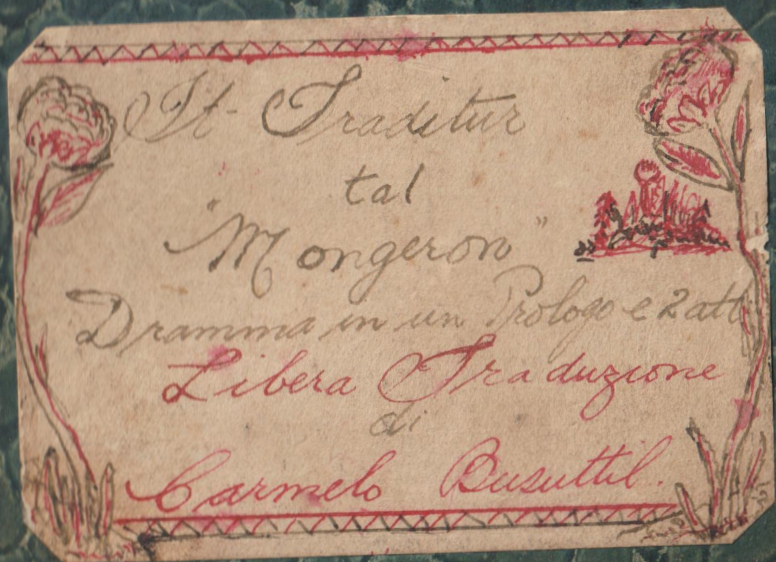 It-Traditur
tal
"Mongeron"
Dramma in un Prologo e 2 atti
Libera Traduzione
di
Carmelo Busuttil.